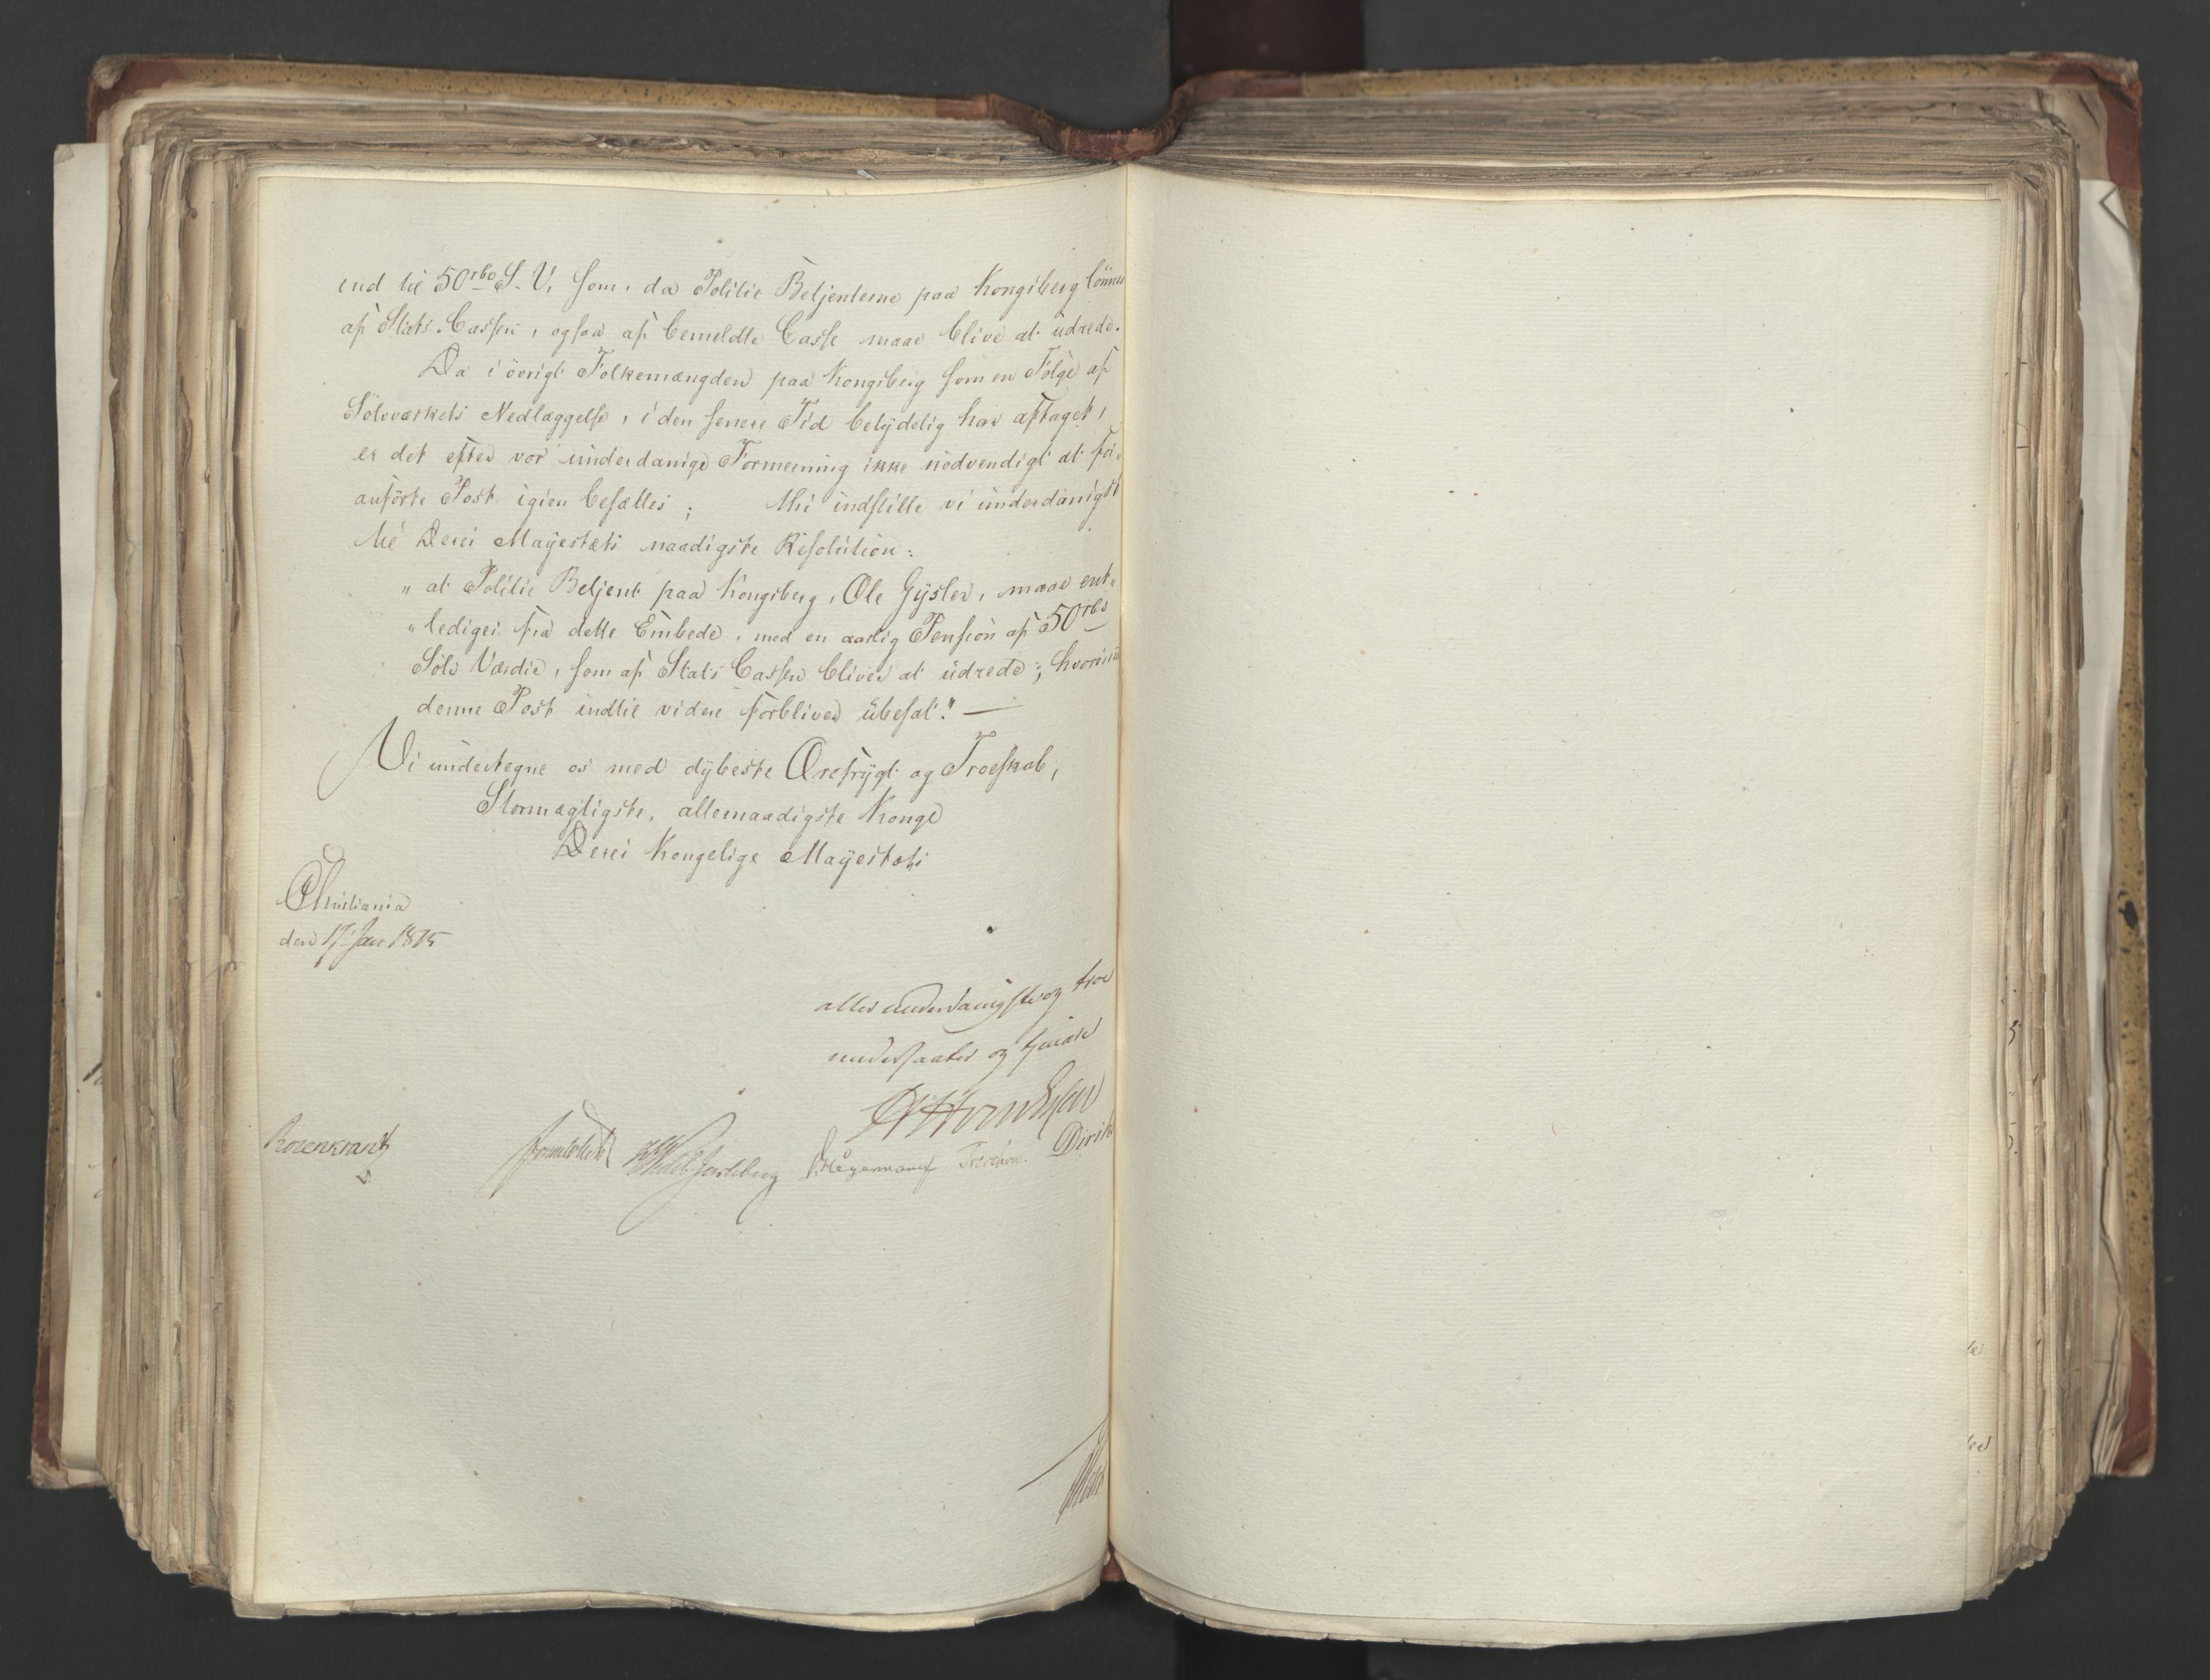 end til 50 rbd S. V. som, da Politie Betjenterne paa Kongsberg lønnes
af Stats-Cassen, ogsaa af bemeldte Casse maae blive at udrede.
Da i øvrigt Folkemængden paa Kongsberg som en Følge af
Sølvværkets Nedlæggelse, i den senere Tid betydelig har aftaget,
er det efter vor underdanige Formeening ikke nødvendigt at for-
anførte Post igien besættes; thi indstille vi underdanigst
til Deres Mayestæts naadigste Resolution:
"at Politie Betjent paa Kongsberg, Ole Gysler, maae ent-
"lediges fra dette Embede, med en aarlig Pension af 50 rbd
Sølv Værdie, som af Stats Cassen bliver at udrede; hvorimod
denne Post indtil videre forbliver ubesat." —
Vi undertegne os med dybeste Ærefrygt og Troeskab,
Stormægtigste, allernaadigste Konge
Deres Kongelige Mayestæts
Christiania
den 17 Jan 1815
allerunderdanigste og troe
undersaatter og tjenere
Rosenkrantz Sommerhielm Wedel Jarlsberg Hegermann Treschow Diriks